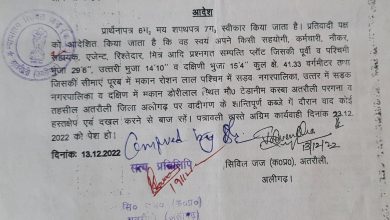 आदेश
प्रार्थनापत्र 6ग, मय शपथपत्र 7ग, स्वीकार किया जाता है। प्रतिवादी पक्ष
को आदेशित किया जाता है कि वह स्वयं अपने किसी सहयोगी, कर्मचारी, नौकर,
मुलाजिम, एजेन्ट, रिश्तेदार, मित्र आदि प्रश्नगत सम्पत्ति प्लॉट जिसकी पूर्व व पश्चिमी
भुजा 29'6", उत्तरी भुजा 14'10" व दक्षिणी भुजा 15'4" कुल क्षे. 41.33 वर्गमीटर तथा
जिसकी सीमाएं पूरब में मकान रोशन लाल पश्चिम में सड़क नगरपालिका, उत्तर में सड़क
नगरपालिका व दक्षिण में मकान डोरीलाल स्थित मौ0 टेडानीम कस्बा अतरौली परगना व
तहसील अतरौली जिला अलीगढ़ पर वादीगण के शान्तिपूर्ण कब्जे में दौरान वाद कोई
हस्तक्षेप एवं दखल करने से बाज रहें। पत्रावली वास्ते अग्रिम कार्यवाही दिनांक 23.12.
2022 को पेश हो।
दिनांक: 13.12.2022
Compared by
सत्य प्रतिलिपि
13/12/22
सिविल जज (क0प्र0), अतरौली,
अलीगढ़।